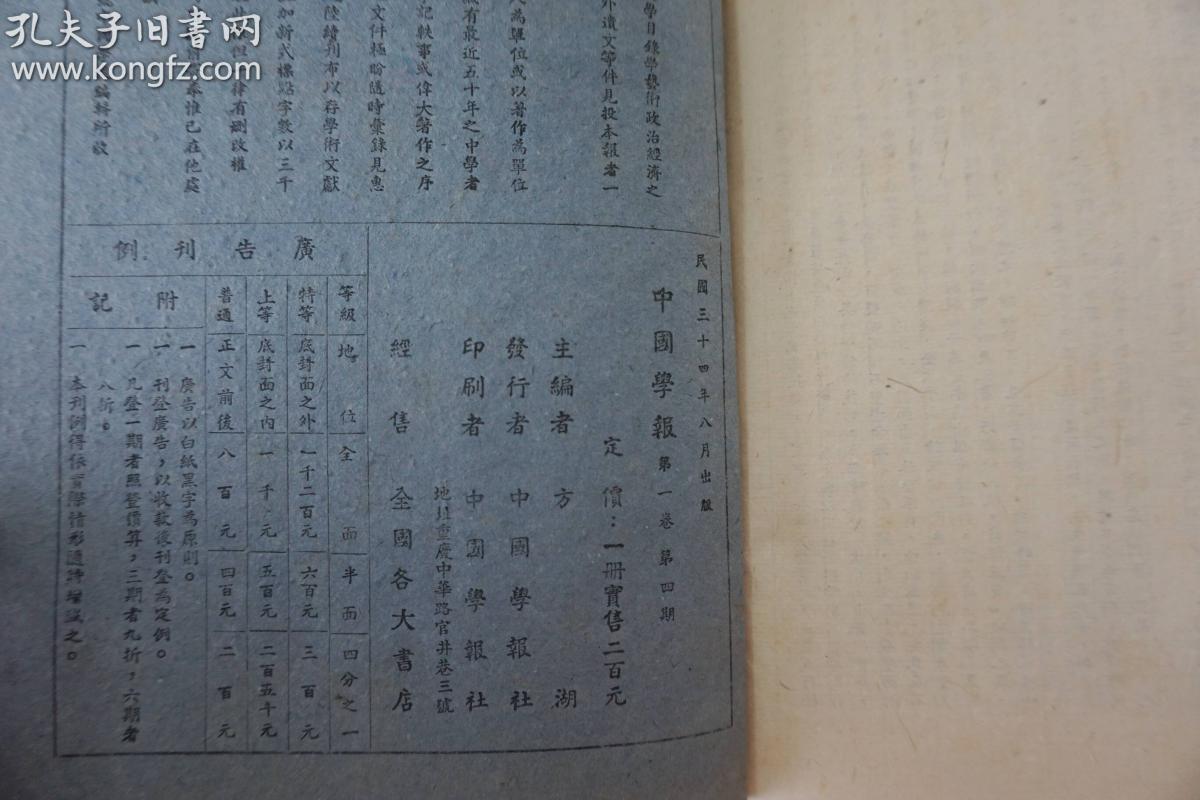 孔夫子旧书网
www.kongfz.com
學目錄學藝術政治經濟之
外遺文等件見投本報者一
人為單位或以著作為單位
有最近五十年之中學者
記軼事或偉大著作之序
文件極盼隨時彙錄見惠
陸續刊布以存學術文獻
加新式標點字數以三千
律有刪改權
惟已在他處
民國三十四年八月出版
中國學報 第一卷 第四期
定價：一冊實售二百元
主編者 方湖
發行者 中國學報社
印刷者 中國學報社
地址重慶中華路官井巷三號
經售 全國各大書店
廣告刊例
等級 地位 全面 半面 四分之一
特等 底封面之外 一千二百元 六百元 三百元
上等 底封面之內 一千元 五百元 二百五十元
普通 正文前後 八百元 四百元 二百元
附記
一 廣告以白紙黑字為原則。
一 刊登廣告，以收款後刊登為定例。
一 凡登一期者照登價算，三期者九折，六期者
八折。
一 本刊例得依實際情形隨時增減之。